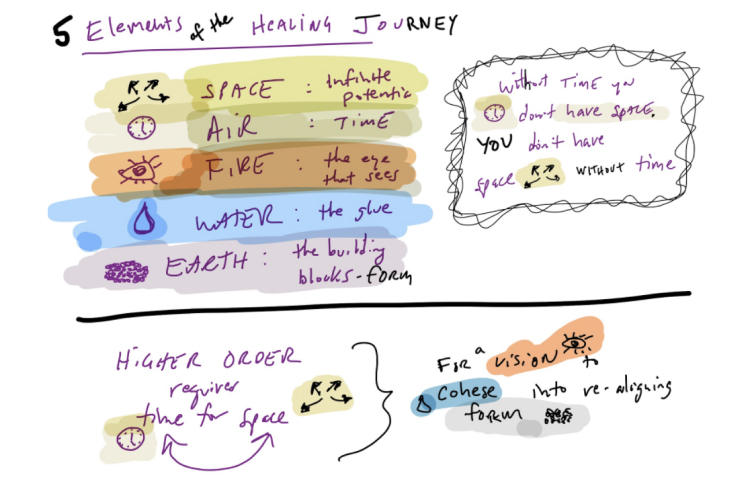 5 Elements of the HEALING JOURNEY
SPACE : Infinite
potential
AIR : TIME
FIRE : the eye
that sees
WATER : the glue
EARTH : the building
blocks - form
Without TIME you
don't have SPACE.
YOU don't have
space WITHOUT time
HIGHER ORDER
requires
time for space
FOR a VISION to
Cohese into re-aligning
form